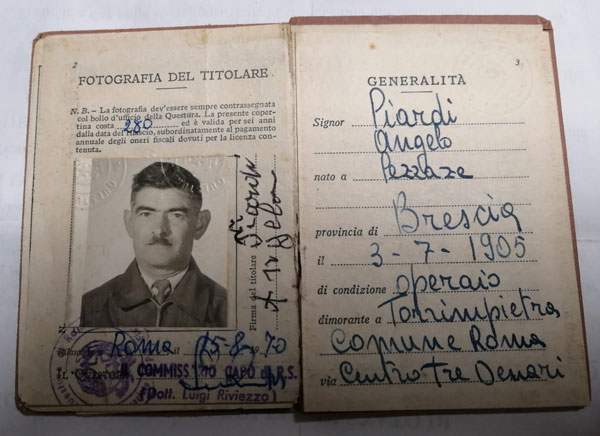 2
FOTOGRAFIA DEL TITOLARE
N. B. - La fotografia dev'essere sempre contrassegnata
col bollo d'ufficio della Questura. La presente coper-
tina costa 280 ed è valida per sei anni
dalla data del rilascio, subordinatamente al pagamento
annuale degli oneri fiscali dovuti per la licenza con-
tenuta.
Firma del titolare
N.
Roma il 15-8-1970
IL QUESTORE COMMISS CAPO di P.S.
(Dott. Luigi Riviezzo)
3
GENERALITÀ
Signor Piardi
Angelo
nato a Pezzaze
provincia di Brescia
il 3-7-1905
di condizione operaio
dimorante a Torrimpietra
Comune Roma
via Centro Tre Denari